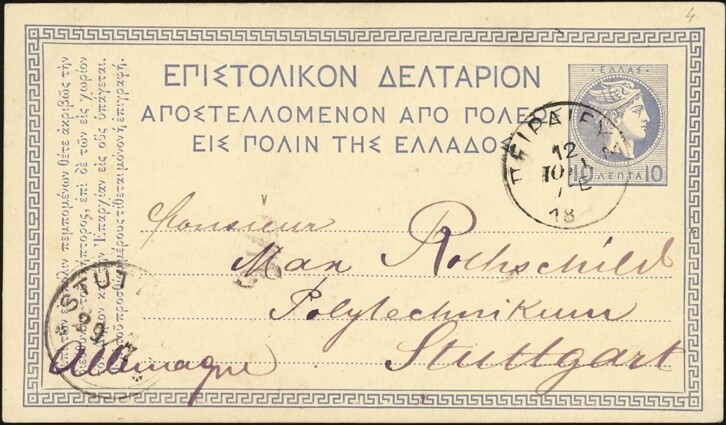 4.
ΕΠΙΣΤΟΛΙΚΟΝ ΔΕΛΤΑΡΙΟΝ
ΑΠΟΣΤΕΛΛΟΜΕΝΟΝ ΑΠΟ ΠΟΛΕ
ΕΙΣ ΠΟΛΙΝ ΤΗΣ ΕΛΛΑΔΟΣ
ΕΛΛΑΣ
10 ΛΕΠΤΑ 10
ΠΕΙΡΑΙΕΥΣ
12
18
πεμπομένων θέτε ἀκριβῶς τὴν
ἐπὶ δὲ τῶν εἰς χωρίον
Ἐπαρχίαν εἰς οὓς ὑπάγεται.
τίθεται μόνον ἡ ἐπιγραφή.
Monsieur
Max Rothschild
Polytechnikum
Stuttgart
Allemagne
STUT